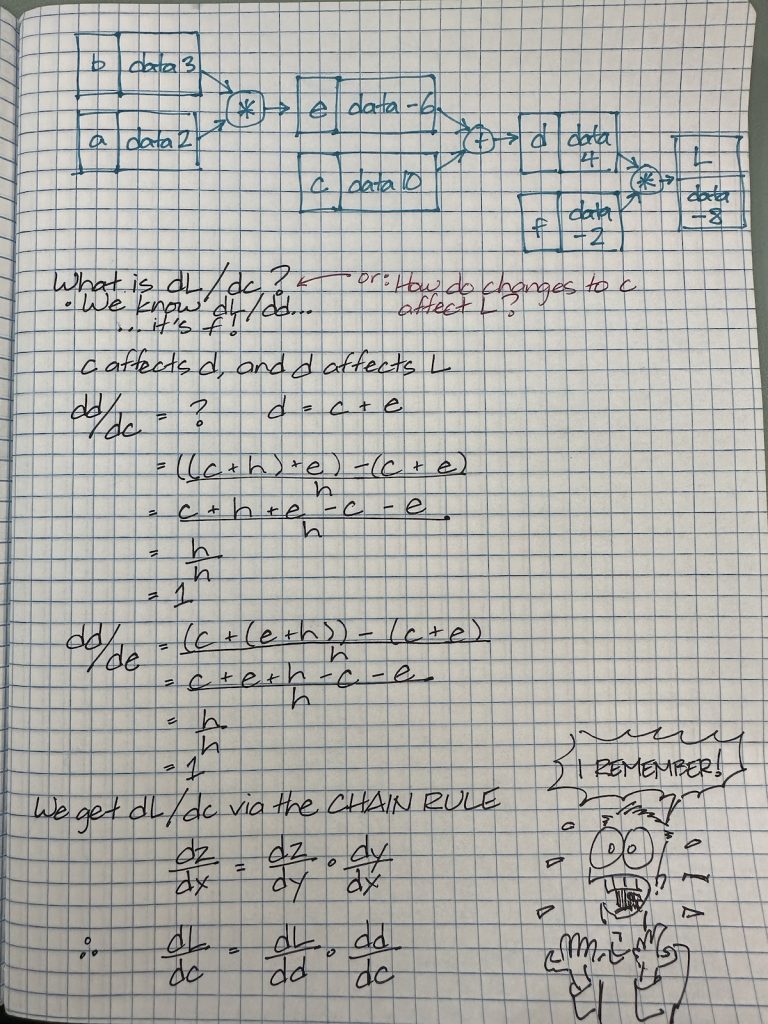 b data 3
a data 2
*
e data -6
c data 10
+
d data 4
f data -2
*
L data -8
What is dL/dc? ← or: How do changes to c affect L?
• We know dL/dd...
... it's f!
c affects d, and d affects L
dd/dc = ? d = c + e
= ((c + h) + e) - (c + e) / h
= c + h + e - c - e / h
= h / h
= 1
dd/de = (c + (e + h)) - (c + e) / h
= c + e + h - c - e / h
= h / h
= 1
I REMEMBER!
We get dL/dc via the CHAIN RULE
dz/dx = dz/dy • dy/dx
∴ dL/dc = dL/dd • dd/dc